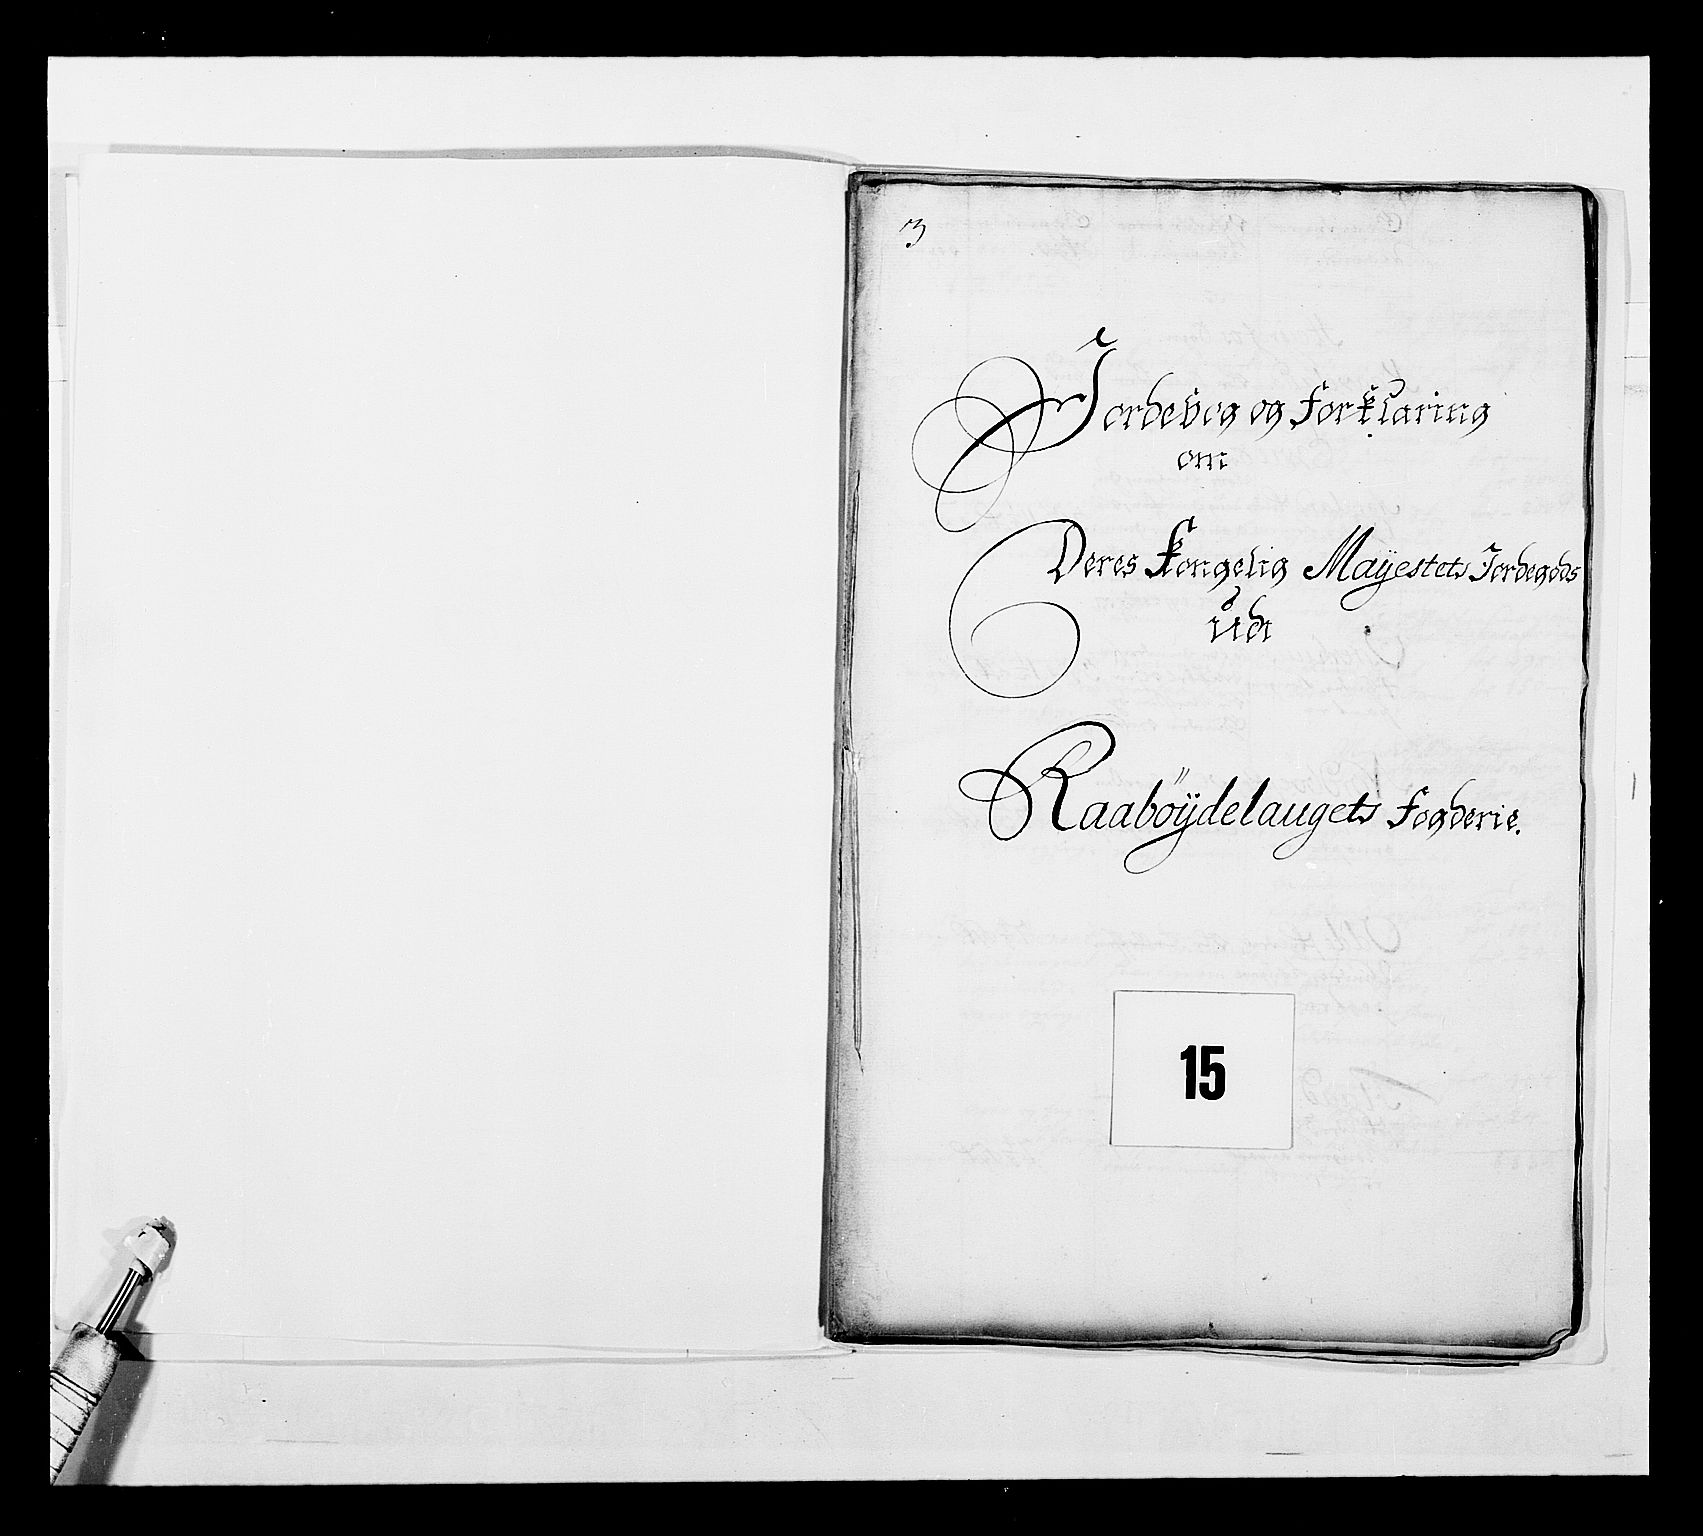 3
Jordebog og Forklaring
om
Deres Kongelig Mayestets Jordegods
Udi
Raabøÿdelaugets Fogderie.
15